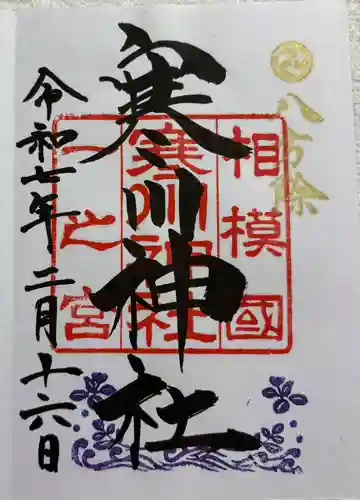 八方除
相模國
寒川神社
一之宮
寒川神社
令和七年二月十六日